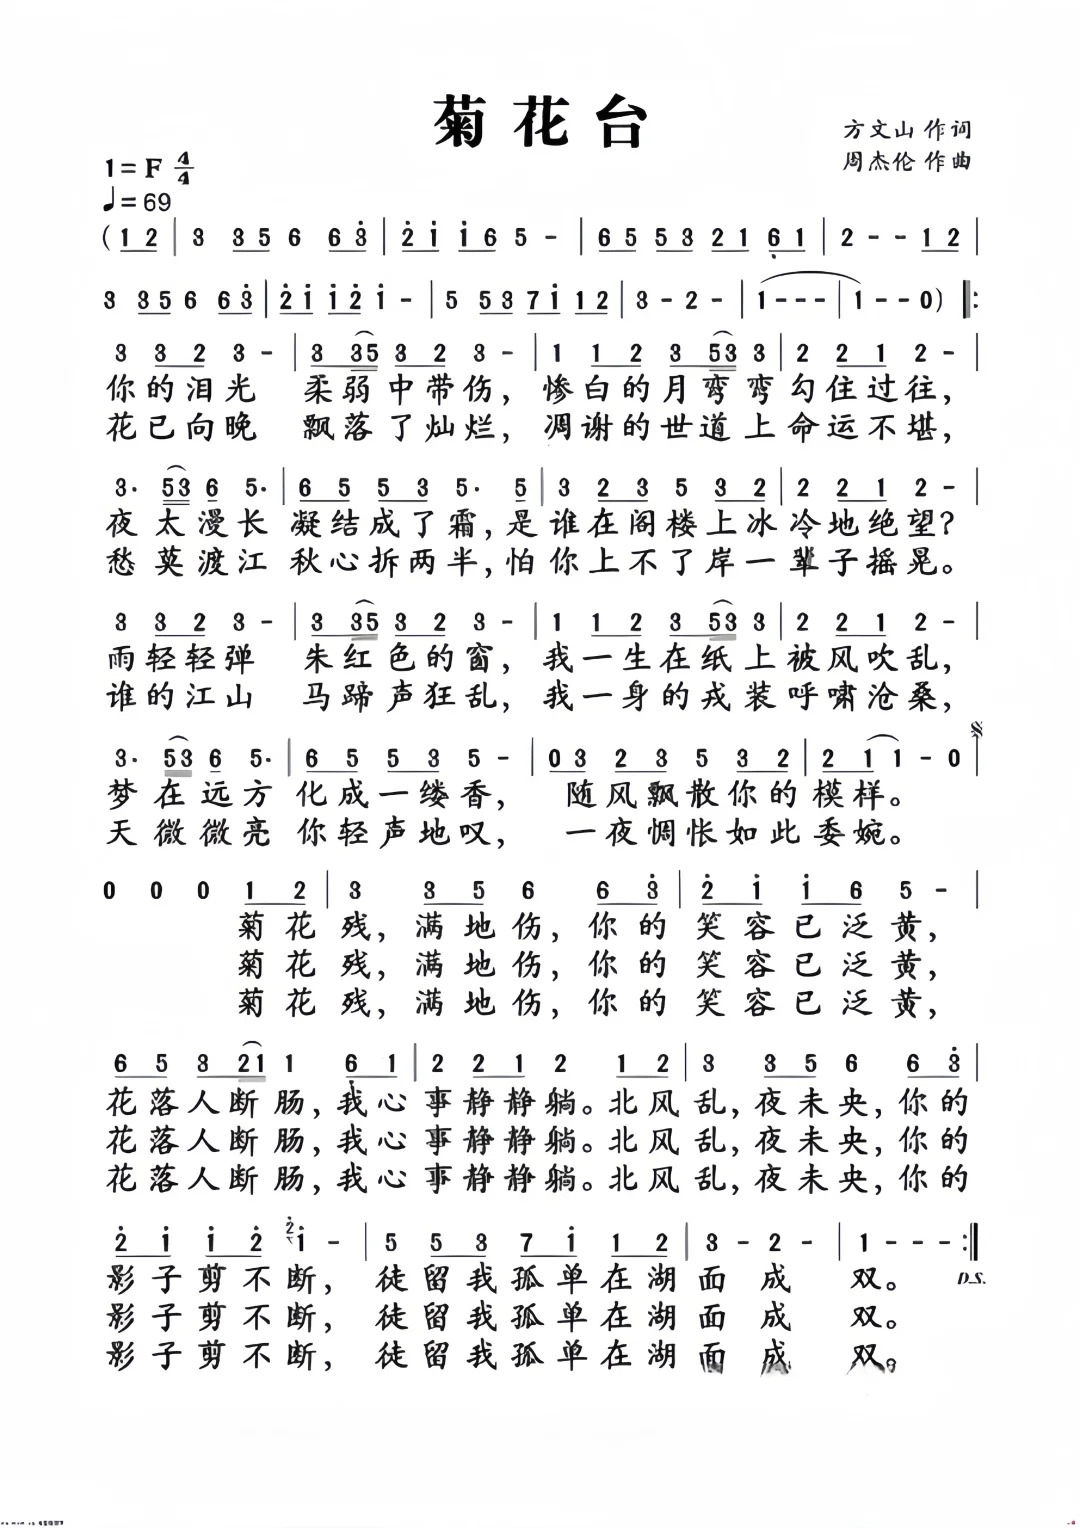 菊花台
方文山 作词
周杰伦 作曲
1=F 4/4
♩=69
(1 2 | 3 3 5 6 6 3̇ | 2̇ 1̇ 1̇ 6 5 - | 6 5 5 3 2 1 6̣ 1 | 2 - - 1 2 |
3 3 5 6 6 3̇ | 2̇ 1̇ 1̇ 2̇ 1̇ - | 5 5 3 7 1̇ 1 2 | 3 - 2 - | 1 - - - | 1 - - 0) ‖:
3 3 2 3 - | 3 3 5 3 2 3 - | 1 1 2 3 5 3 3 | 2 2 1 2 - |
你的泪光 柔弱中带伤，惨白的月弯弯勾住过往，
花已向晚 飘落了灿烂，凋谢的世道上命运不堪，
3· 5 3 6 5· | 6 5 5 3 5· 5 | 3 2 3 5 3 2 | 2 2 1 2 - |
夜太漫长 凝结成了霜，是谁在阁楼上冰冷地绝望？
愁莫渡江 秋心拆两半，怕你上不了岸一辈子摇晃。
3 3 2 3 - | 3 3 5 3 2 3 - | 1 1 2 3 5 3 3 | 2 2 1 2 - |
雨轻轻弹 朱红色的窗，我一生在纸上被风吹乱，
谁的江山 马蹄声狂乱，我一身的戎装呼啸沧桑，
𝄋
3· 5 3 6 5· | 6 5 5 3 5 - | 0 3 2 3 3 2 | 2 1 1 - 0 |
梦在远方 化成一缕香，随风飘散你的模样。
天微微亮 你轻声地叹，一夜惆怅如此委婉。
0 0 0 1 2 | 3 3 5 6 6 3̇ | 2̇ 1̇ 1̇ 6 5 - |
菊花残，满地伤，你的笑容已泛黄，
菊花残，满地伤，你的笑容已泛黄，
菊花残，满地伤，你的笑容已泛黄，
6 5 3 2 1 1 6̣ 1 | 2 2 1 2 1 2 | 3 3 5 6 6 3̇ |
花落人断肠，我心事静静躺。北风乱，夜未央，你的
花落人断肠，我心事静静躺。北风乱，夜未央，你的
花落人断肠，我心事静静躺。北风乱，夜未央，你的
2̇ 1̇ 1̇ 2̇ 2̇ 1̇ - | 5 5 3 7 1̇ 1 2 | 3 - 2 - | 1 - - - :‖
影子剪不断，徒留我孤单在湖面成双。
D.S.
影子剪不断，徒留我孤单在湖面成双。
影子剪不断，徒留我孤单在湖面成双。